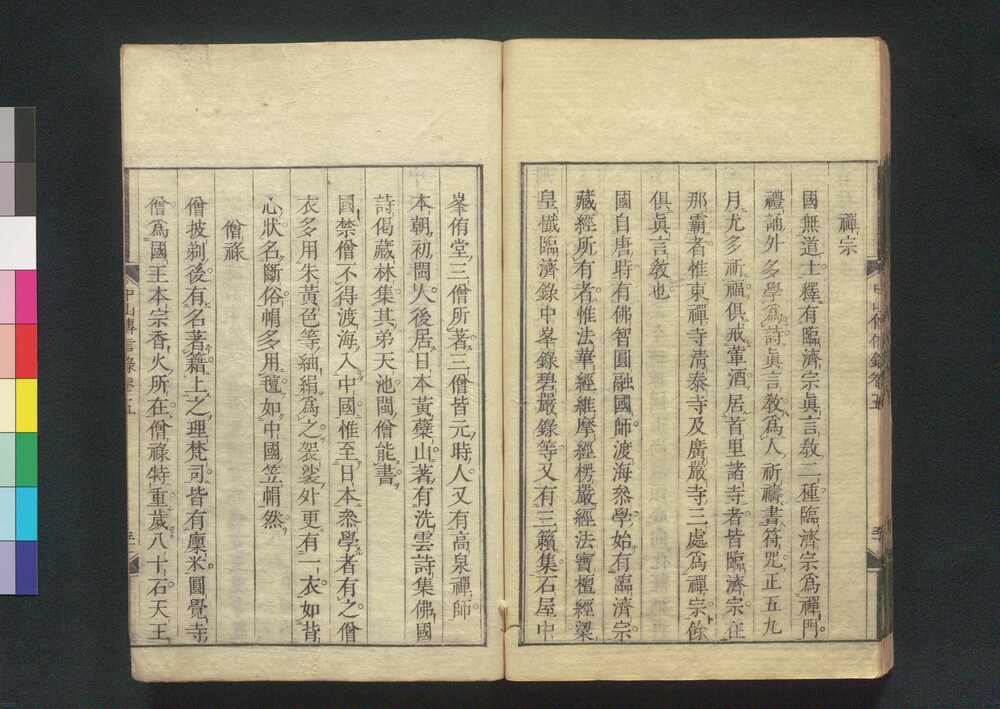 禪宗
國無道士釋有臨濟宗眞言教二種臨濟宗爲禪門
禮誦外多學爲詩眞言教爲人祈禱書符咒正五九
月尤多祈福俱戒葷酒居首里諸寺者皆臨濟宗在
那霸者惟東禪寺清泰寺及廣嚴寺三處爲禪宗餘
俱眞言教也
國自唐時有佛智圓融國師渡海叅學始有臨濟宗
藏經所有者惟法華經維摩經楞嚴經法寶檀經梁
皇懺臨濟錄中峯錄碧嚴錄等又有三籟集石屋中
峯侑堂三僧所著三僧皆元時人又有高泉禪師
本朝初閩人後居日本黃蘗山著有洗雲詩集佛國
詩偈藏林集其弟天池閩僧能書
國禁僧不得渡海入中國惟至日本叅學者有之僧
衣多用朱黃色等紬絹爲之袈裟外更有一衣如背
心狀名斷俗帽多用氊如中國笠帽然
僧祿
僧披剃後有名著籍上之理梵司皆有廩米圓覺寺
僧爲國王本宗香火所在僧祿特重歲八十石天王
中山傳信錄卷五